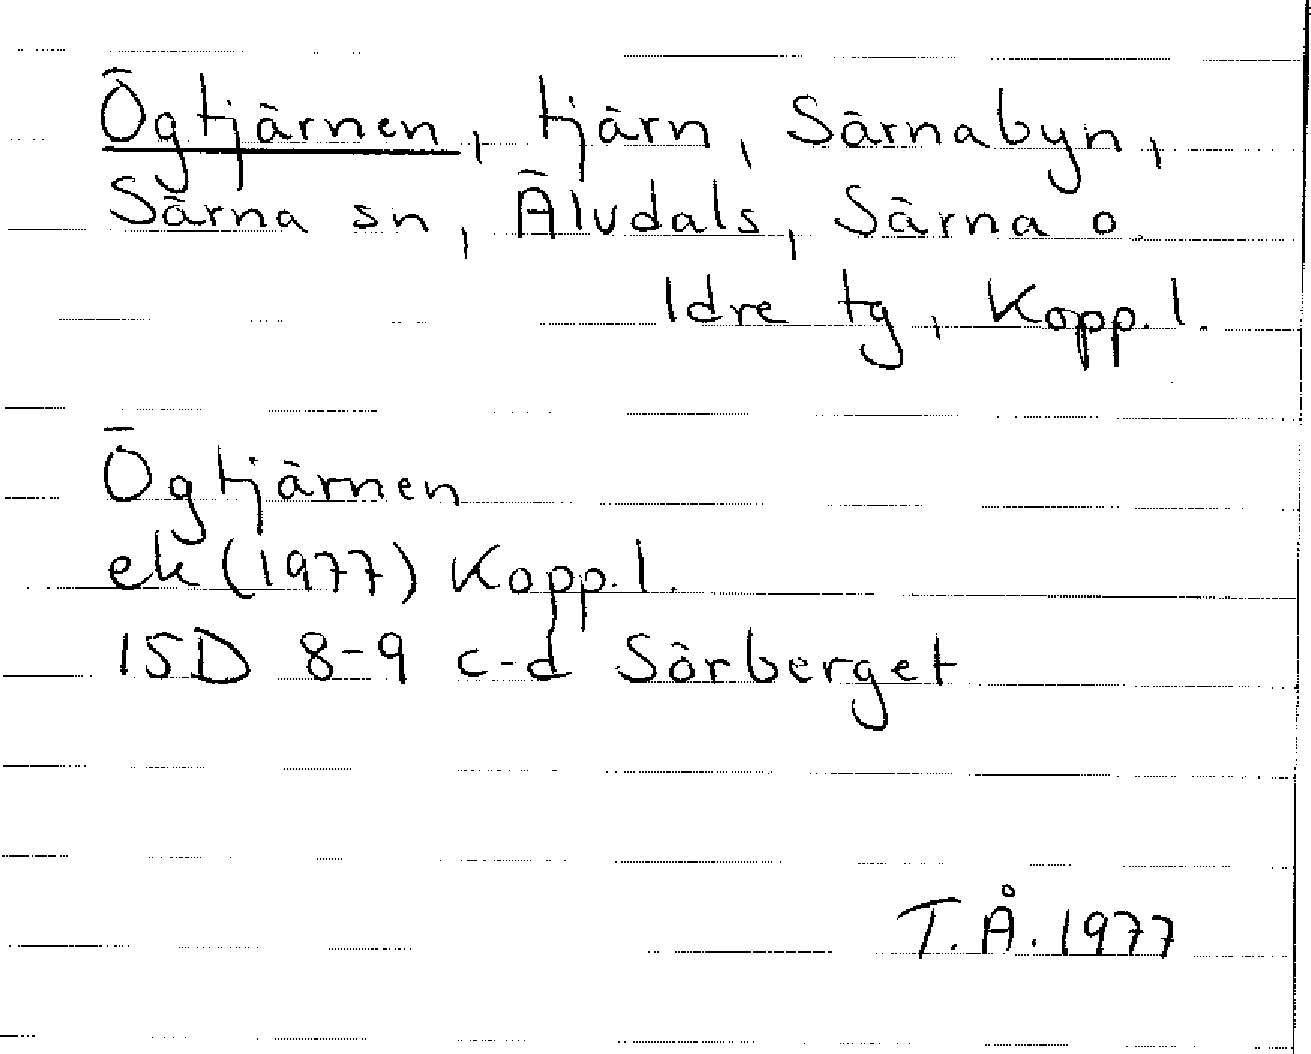 Ögtjärnen, tjärn, Särnabyn,
Särna sn, Älvdals, Särna o.
Idre tg, Kopp. l.
Ögtjärnen
ek (1977) Kopp. l.
15D 8-9 c-d Sörberget
T.Å. 1977